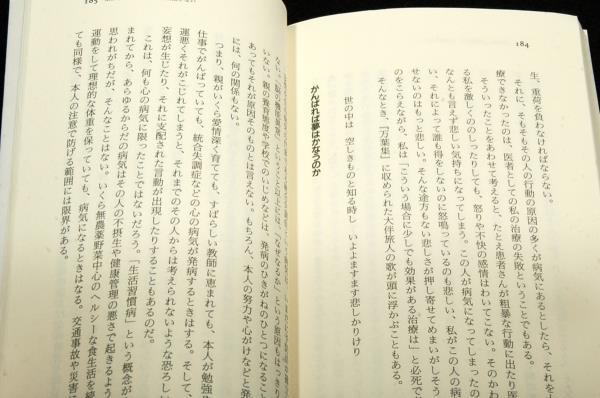 184
生、重荷を負わなければならない。
それに、そもそもその人の行動の原因の多くが病気にあるとしたら、それを
療できなかったのは、医者としての私の治療の失敗ということでもある。
そういったことをあわせて考えると、たとえ患者さんが粗暴な行動に出たり医
る私を激しくののしったりしても、怒りや不快の感情はわいてこない。そのかわ
なんとも言えず悲しい気持ちになってしまう。この人が病気になってしまったの
い、それによって誰も得をしないのに怒鳴っているのも悲しい、私がこの人の病
せないのはもっと悲しい。そんな途方もない悲しさが押し寄せてめまいがしそう
のをこらえながら、私は「こういう場合に少しでも効果がある治療は」と必死で
そんなとき、『万葉集』に収められた大伴旅人の歌が頭に浮かぶこともある。
世の中は 空しきものと知る時し いよよますます悲しかりけり
がんばれば夢はかなうのか
ない。「脳の機能障害」という
いない。親の養育態度や学校でのいじめなどは、発病のひきがねのひとつになるこ
あってもそれが原因そのものとは言えない。もちろん、本人の努力や心がけなどと発
には、何の関係もない。
つまり、親がいくら愛情深く育てても、すばらしい教師に恵まれても、本人が勉強
仕事でがんばっていても、統合失調症などの心の病気が発病するときはする。そして、
運悪くそれがこじれてしまうと、それまでのその人からは考えられないような恐ろし
妄想が生じたり、それに支配された言動が出現したりすることもあるのだ。
これは、何も心の病気に限ったことではないだろう。「生活習慣病」という概念が
まれてから、あらゆるからだの病気はその人の不摂生や健康管理の悪さで起きるよう
思われがちだが、そんなことはない。いくら無農薬野菜中心のヘルシーな食生活を続
運動をして理想的な体重を保っていても、病気になるときはなる。交通事故や災害
ても同様で、本人の注意で防げる範囲には限界がある。
185